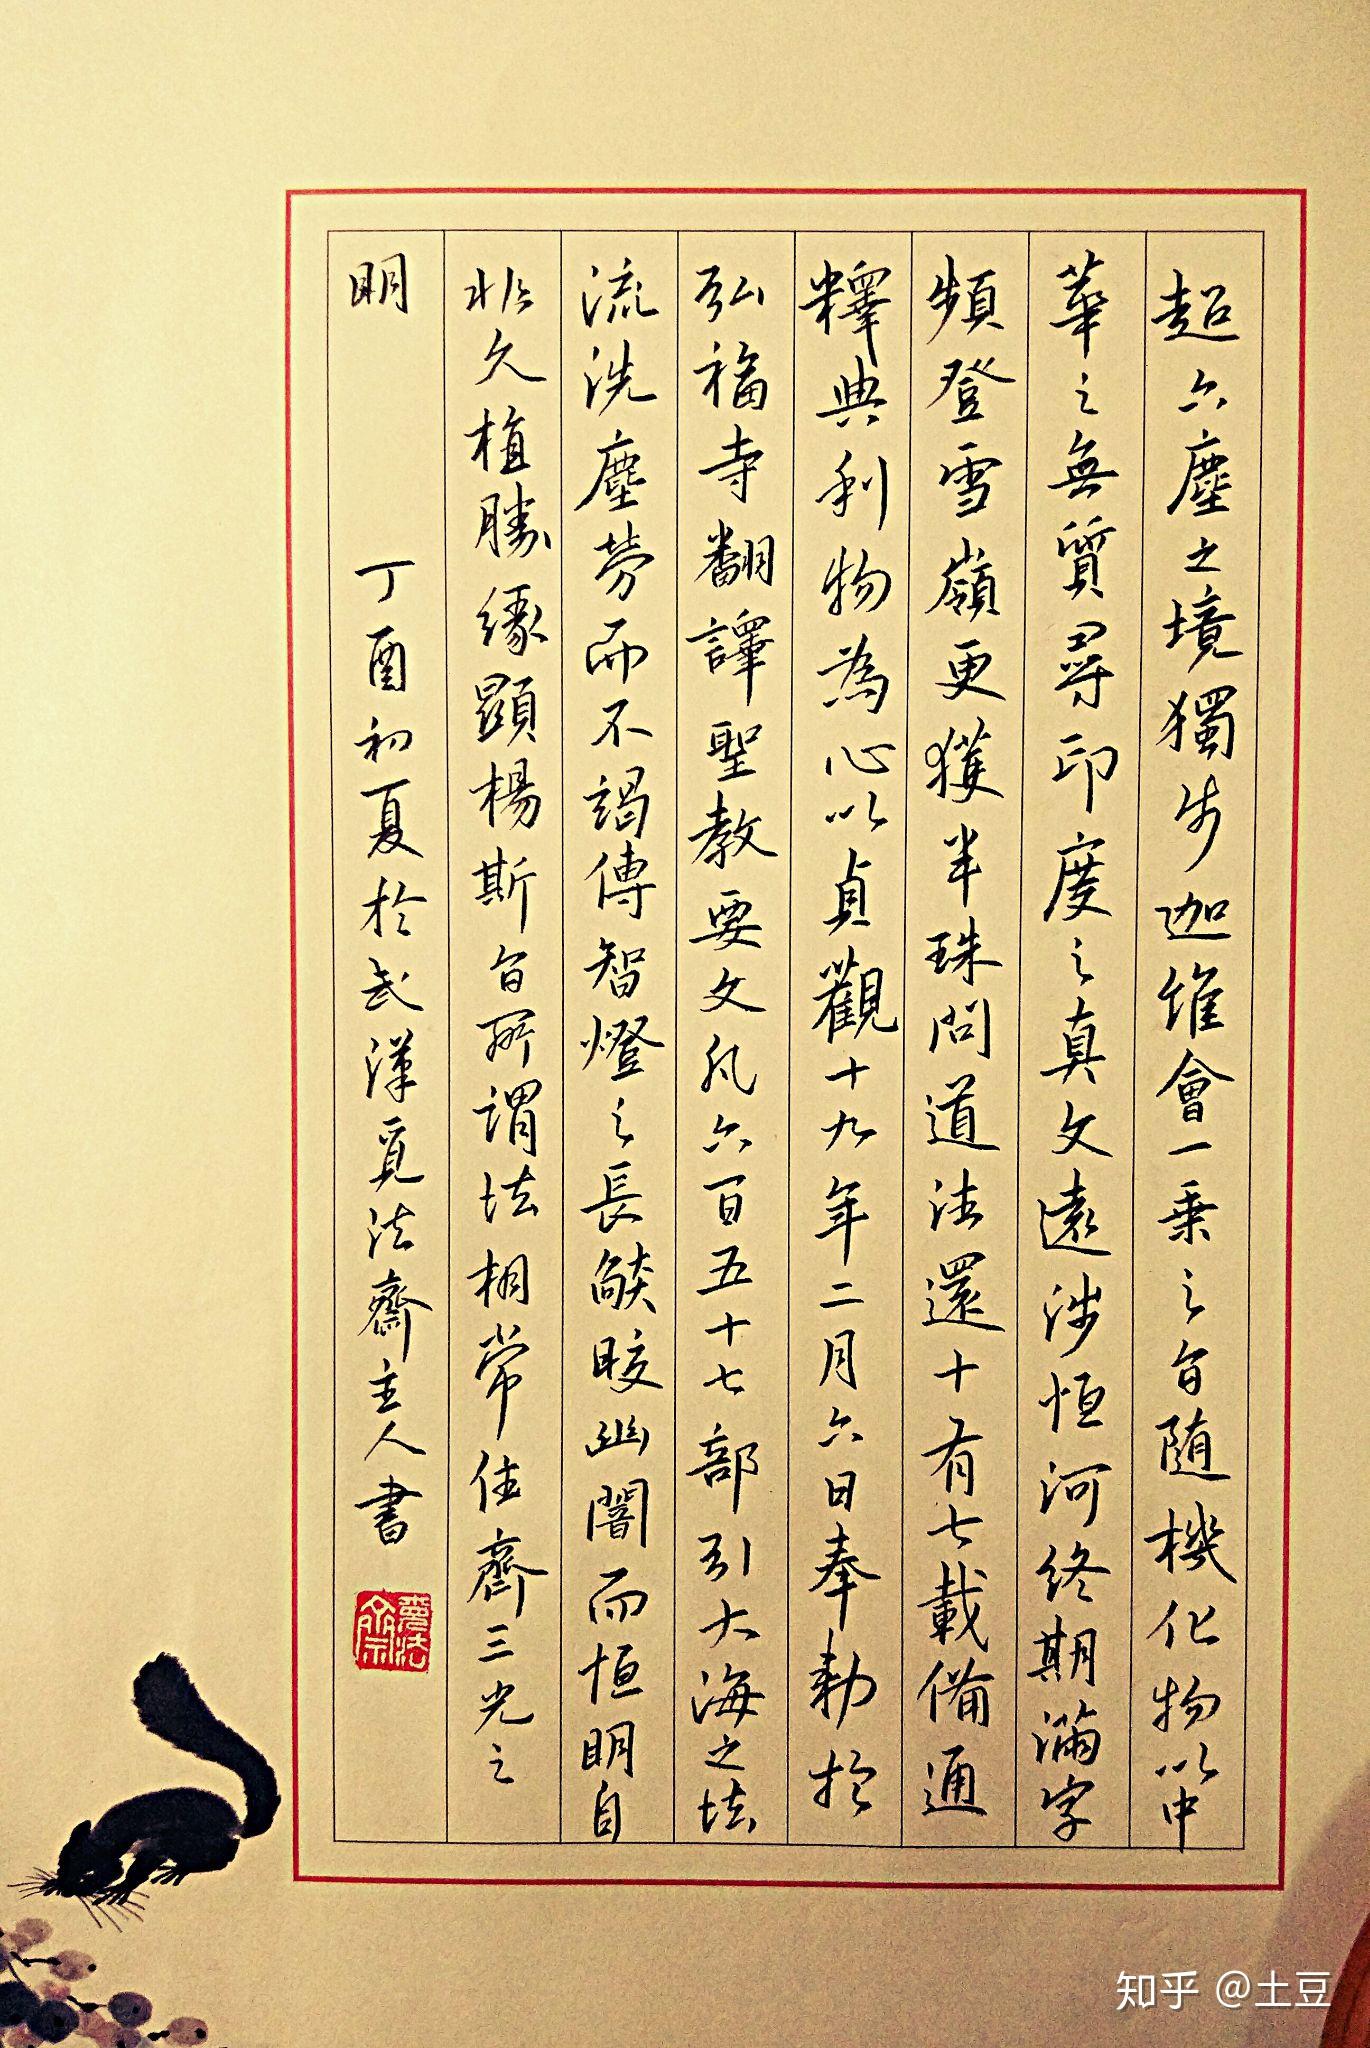 超六塵之境獨步迦維會一乘之旨随機化物以中
華之無質尋印度之真文遠涉恒河終期滿字
頻登雪嶺更獲半珠問道法還十有七載備通
釋典利物為心以貞觀十九年二月六日奉勅於
弘福寺翻譯聖教要文凡六百五十七部引大海之法
流洗塵勞而不竭傳智燈之長燄皎幽闇而恒明自
非久植勝緣顯揚斯旨所謂法相常住齊三光之
明
丁酉初夏於武漢覓法齋主人書
覓法齋
知乎 @土豆